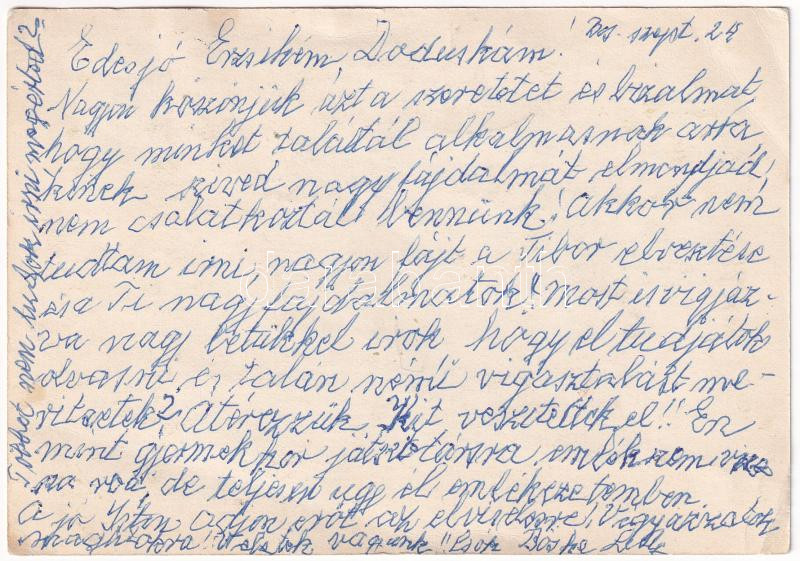 szept. 24
Edes jó Erzsikém Doduskám!
Nagyon köszönjük azt a szeretetet és bizalmat
hogy minket találtál alkalmasnak arra
kinek szived nagy fájdalmát elmondjad!
nem csalatkoztál bennünk! Akkor nem
tudtam irni, nagyon fájt a Tibor elvesztése
és a Ti nagy fájdalmatok! most is vigyáz-
va nagy betükkel irok hogy el tudjátok
olvasni és talán némű vigasztalást me-
ritsetek? Átérezzük Kit vesztettek el!! Én
mint gyermekkor játszótársra emlékszem
rá de teljesen úgy él emlékezetemben
a jó Isten adjon erőt az elviselésre! Vigyázzatok
magatokra! Veletek vagunk!! Csók Böske
Tobbet nem tudok irni